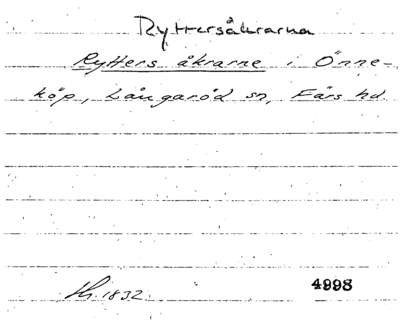 Ryttersåkrarna
Rytters åkrarne i Önne-
köp, Långaröd sn, Färs hd.
Lh. 1832. 4998